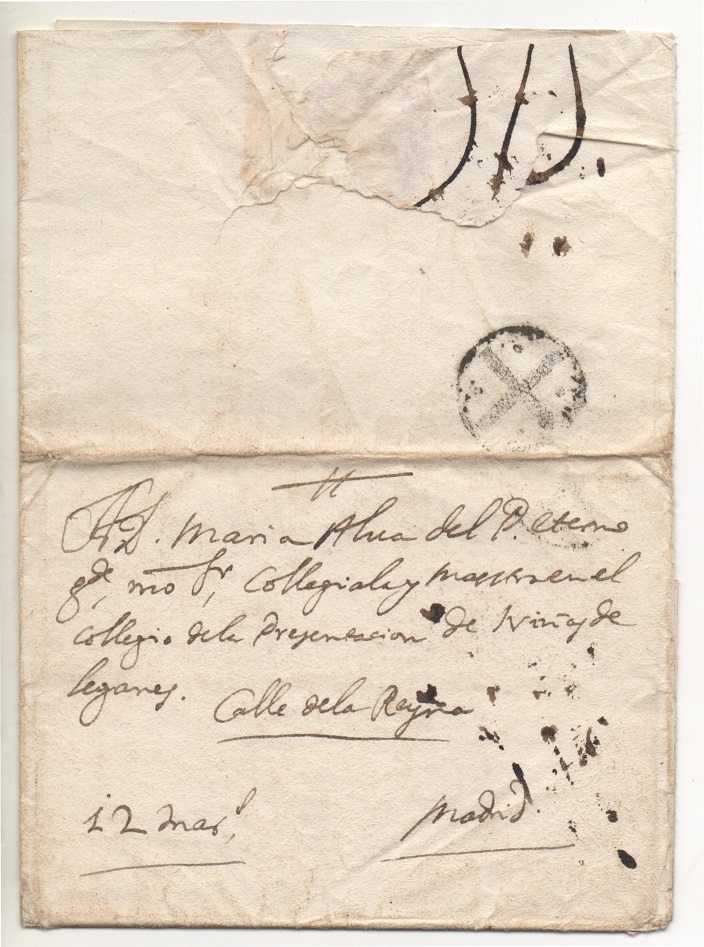 A D. Maria Alva del P. eterno
gde, mo Sr, Collegiala y maestra en el
collegio dela Presentacion de Niñas de
leganes.
Calle dela Reyna
12 mars,
Madrid.